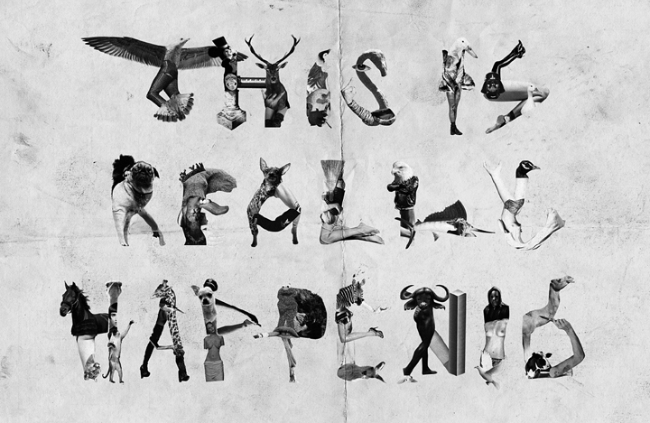 THIS IS
REALLY
HAPPENIG